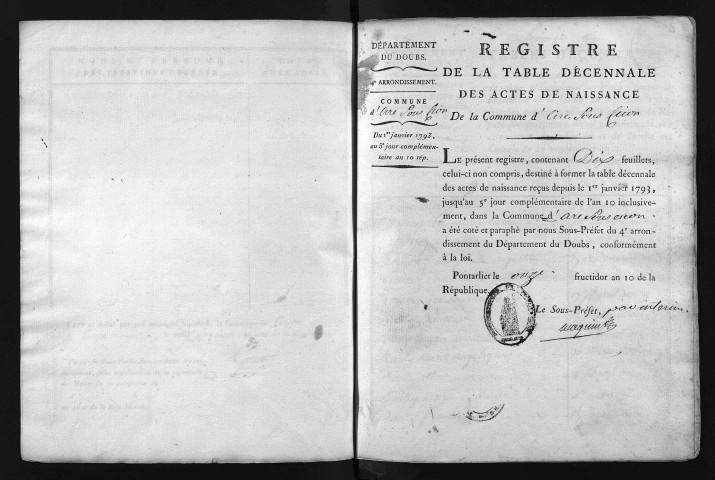 DÉPARTEMENT
DU DOUBS.
4e ARRONDISSEMENT.
COMMUNE
d'Arc Sous Cicon
Du 1er janvier 1793,
au 5e jour complémen-
taire an 10 rép.
REGISTRE
DE LA TABLE DÉCENNALE
DES ACTES DE NAISSANCE
De la Commune d'Arc Sous Cicon
LE présent registre, contenant Dix feuillets,
celui-ci non compris, destiné à former la table décennale
des actes de naissance reçus depuis le 1er janvier 1793,
jusqu'au 5e jour complémentaire de l'an 10 inclusive-
ment, dans la Commune d'Arc Sous Cicon
a été coté et paraphé par nous Sous-Préfet du 4e arron-
dissement du Département du Doubs, conformément
à la loi.
Pontarlier le onze fructidor an 10 de la
République.
Le Sous-Préfet, par interim